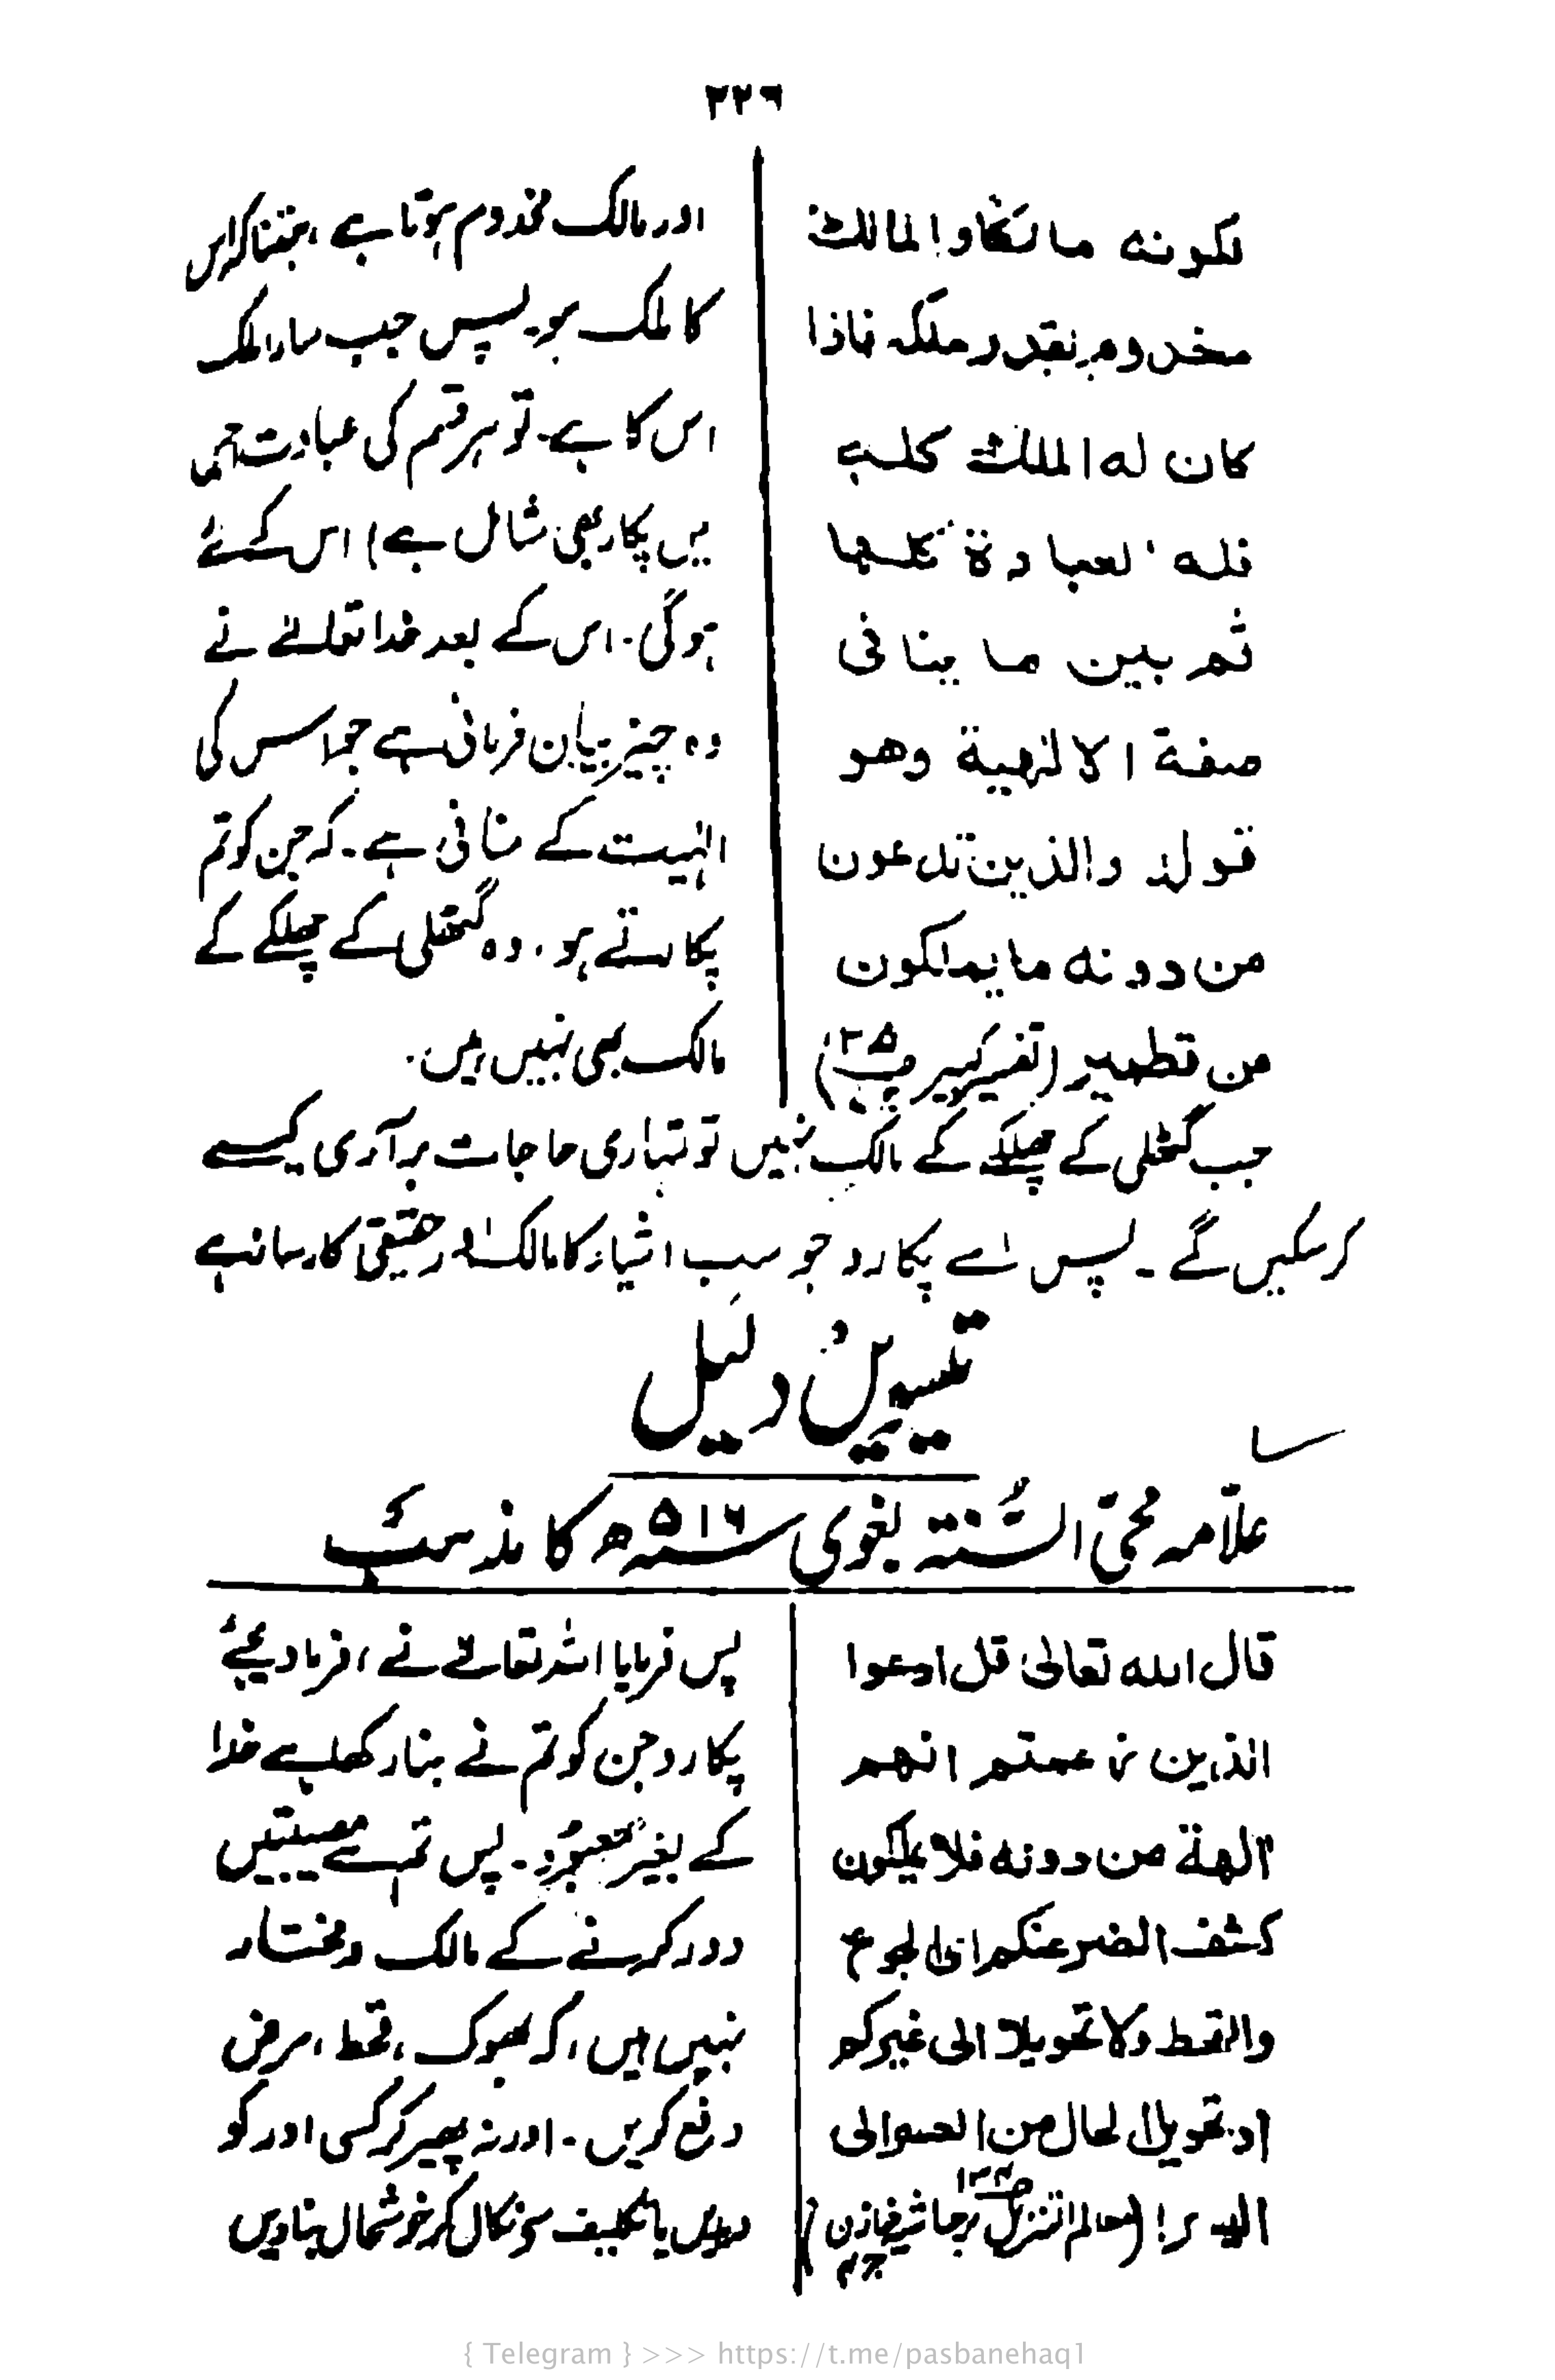 ۲۲۶
لكونه مالكا والمالك
مخدوم بقدر ملكه فاذا
كان له الملك كله
فله العبادة كلها
ثم بين ما ينافى
صفة الالٰهية وهو
قوله والذين تدعون
من دونه ما يملكون
من قطمير (تفسیر کبیر
اور مالک مخدوم ہوتا ہے، جتنا کہ اس
کا ملک ہو۔ پس جب سارا ملک
اس کا ہے۔ تو ہر قسم کی عبادت (جس
میں پکار بھی شامل ہے) اس کے لئے
ہوگی۔ اس کے بعد خدا تعالےٰ نے
وہ چیز بیان فرمائی ہے جو اس کی
الٰہیت کے منافی ہے۔ کہ جن کو تم
پکارتے ہو، وہ گٹھلی کے چھلکے کے
مالک بھی نہیں ہیں۔
جب گٹھلی کے چھلکے کے مالک نہیں تو تمہاری حاجات برآری کیسے
کر سکیں گے۔ پس اسے پکارو جو سب اشیاء کا مالک اور حقیقی کارساز ہے
دلیل
علامہ محی السنۃ بغوی ۵۱۶ھ کا مذہب
قال الله تعالىٰ قل ادعوا
الذين زعمتم انهم
الهة من دونه فلا يملكون
كشف الضر عنكم اى الجوع
والقحط ولا تحويلا الى غيركم
او تحويل الحال من العسر الى
اليسر! (معالم التنزیل برحاشیہ خازن
پس فرمایا اللہ تعالےٰ نے، فرما دیجئے
پکارو جن کو تم نے بنا رکھا ہے خدا
کے بغیر معبود۔ پس تم سے مصیبتیں
دور کرنے کے مالک و مختار
نہیں ہیں، کہ بھوک، قحط، مرض
دفع کریں۔ اور نہ پھیر کر کسی اور کو
دیدیں یا تکلیف سے نکال کر خوشحال بنا دیں
{ Telegram } >>> https://t.me/pasbanehaq1